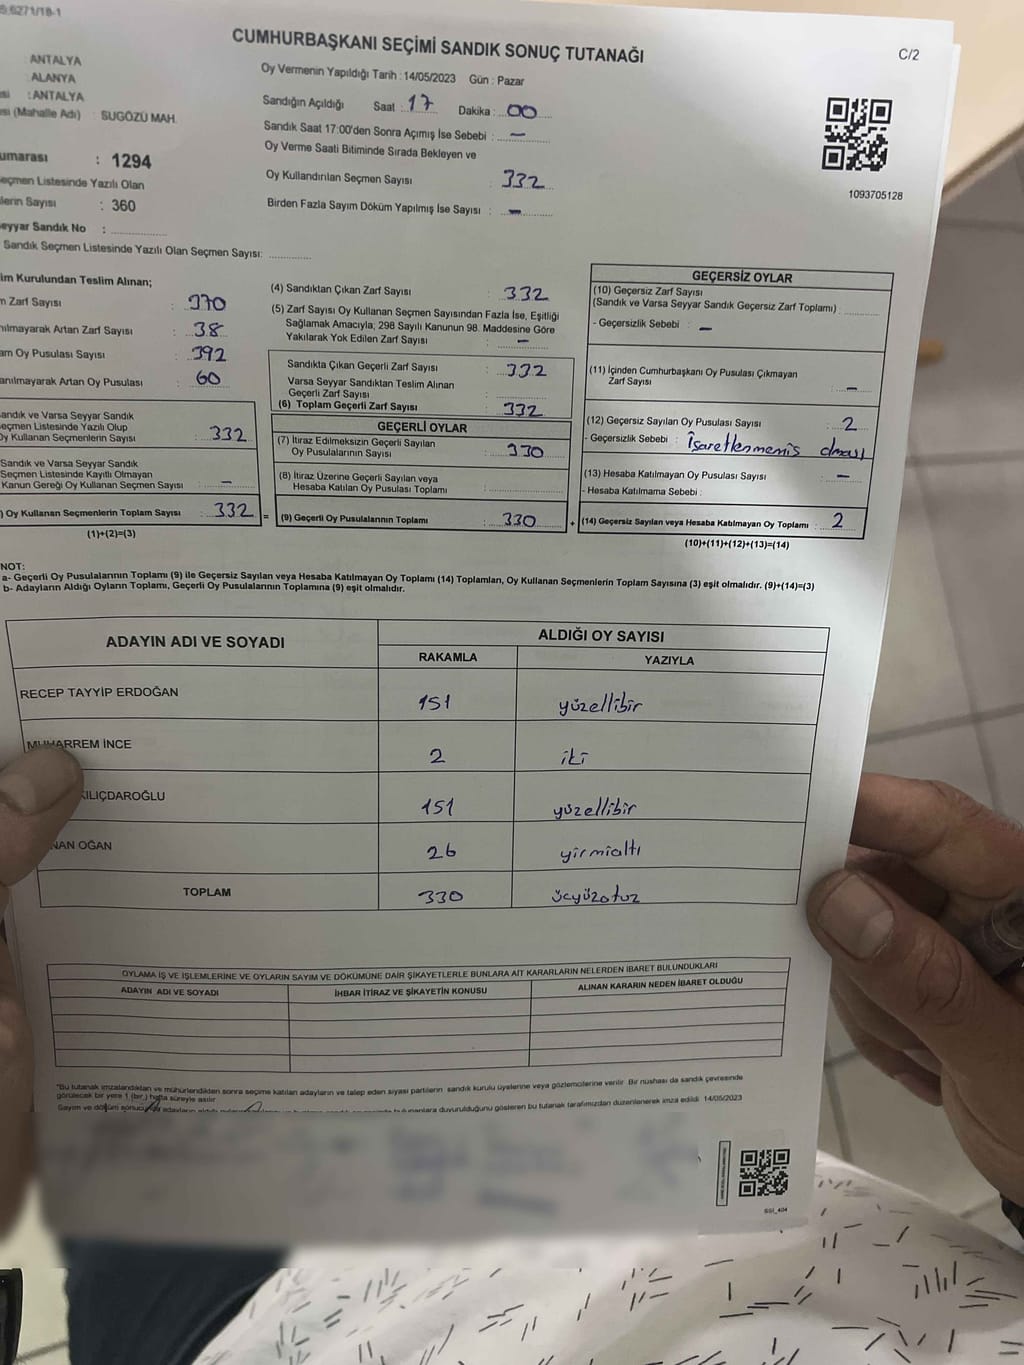 6271/18-1
CUMHURBAŞKANI SEÇİMİ SANDIK SONUÇ TUTANAĞI
C/2
: ANTALYA
: ALANYA
: ANTALYA
(Mahalle Adı) : SUGÖZÜ MAH.
: 1294
Seçmen Listesinde Yazılı Olan
Sayısı : 360
Seyyar Sandık No :
Sandık Seçmen Listesinde Yazılı Olan Seçmen Sayısı:
Oy Vermenin Yapıldığı Tarih : 14/05/2023 Gün : Pazar
Sandığın Açıldığı Saat : 17 Dakika : 00
Sandık Saat 17:00'den Sonra Açımış İse Sebebi : –
Oy Verme Saati Bitiminde Sırada Bekleyen ve
Oy Kullandırılan Seçmen Sayısı : 332
Birden Fazla Sayım Döküm Yapılmış İse Sayısı : –
1093705128
Kurulundan Teslim Alınan;
Zarf Sayısı : 370
Artan Zarf Sayısı : 38
Oy Pusulası Sayısı : 392
Artan Oy Pusulası : 60
Sandık ve Varsa Seyyar Sandık
Seçmen Listesinde Yazılı Olup
Oy Kullanan Seçmenlerin Sayısı : 332
Sandık ve Varsa Seyyar Sandık
Seçmen Listesinde Kayıtlı Olmayan
Kanun Gereği Oy Kullanan Seçmen Sayısı : –
) Oy Kullanan Seçmenlerin Toplam Sayısı : 332 =
(1)+(2)=(3)
(4) Sandıktan Çıkan Zarf Sayısı : 332
(5) Zarf Sayısı Oy Kullanan Seçmen Sayısından Fazla İse, Eşitliği
Sağlamak Amacıyla; 298 Sayılı Kanunun 98. Maddesine Göre
Yakılarak Yok Edilen Zarf Sayısı : –
Sandıkta Çıkan Geçerli Zarf Sayısı : 332
Varsa Seyyar Sandıktan Teslim Alınan
Geçerli Zarf Sayısı :
(6) Toplam Geçerli Zarf Sayısı : 332
GEÇERLİ OYLAR
(7) İtiraz Edilmeksizin Geçerli Sayılan
Oy Pusulalarının Sayısı : 330
(8) İtiraz Üzerine Geçerli Sayılan veya
Hesaba Katılan Oy Pusulası Toplamı :
(9) Geçerli Oy Pusulalarının Toplamı : 330 +
GEÇERSİZ OYLAR
(10) Geçersiz Zarf Sayısı
(Sandık ve Varsa Seyyar Sandık Geçersiz Zarf Toplamı) :
- Geçersizlik Sebebi : –
(11) İçinden Cumhurbaşkanı Oy Pusulası Çıkmayan
Zarf Sayısı : –
(12) Geçersiz Sayılan Oy Pusulası Sayısı : 2
- Geçersizlik Sebebi : İşaretlenmemiş olması
(13) Hesaba Katılmayan Oy Pusulası Sayısı : –
- Hesaba Katılmama Sebebi :
(14) Geçersiz Sayılan veya Hesaba Katılmayan Oy Toplamı : 2
(10)+(11)+(12)+(13)=(14)
NOT:
a- Geçerli Oy Pusulalarının Toplamı (9) ile Geçersiz Sayılan veya Hesaba Katılmayan Oy Toplamı (14) Toplamları, Oy Kullanan Seçmenlerin Toplam Sayısına (3) eşit olmalıdır. (9)+(14)=(3)
b- Adayların Aldığı Oyların Toplamı, Geçerli Oy Pusulalarının Toplamına (9) eşit olmalıdır.
ADAYIN ADI VE SOYADI ALDIĞI OY SAYISI
RAKAMLA YAZIYLA
RECEP TAYYİP ERDOĞAN 151 yüzellibir
MUHARREM İNCE 2 iki
KILIÇDAROĞLU 151 yüzellibir
OĞAN 26 yirmialtı
TOPLAM 330 üçyüzotuz
OYLAMA İŞ VE İŞLEMLERİNE VE OYLARIN SAYIM VE DÖKÜMÜNE DAİR ŞİKAYETLERLE BUNLARA AİT KARARLARIN NELERDEN İBARET BULUNDUKLARI
ADAYIN ADI VE SOYADI İHBAR İTİRAZ VE ŞİKAYETİN KONUSU ALINAN KARARIN NEDEN İBARET OLDUĞU
*Bu tutanak imzalandıktan ve mühürlendikten sonra seçime katılan adayların ve talep eden siyasi partilerin sandık kurulu üyelerine veya gözlemcilerine verilir. Bir nüshası da sandık çevresinde
görülecek bir yere 1 (bir) hafta süreyle asılır
Sayım ve döküm duyurulduğunu gösteren bu tutanak tarafımızdan düzenlenerek imza edildi 14/05/2023
SSİ_404